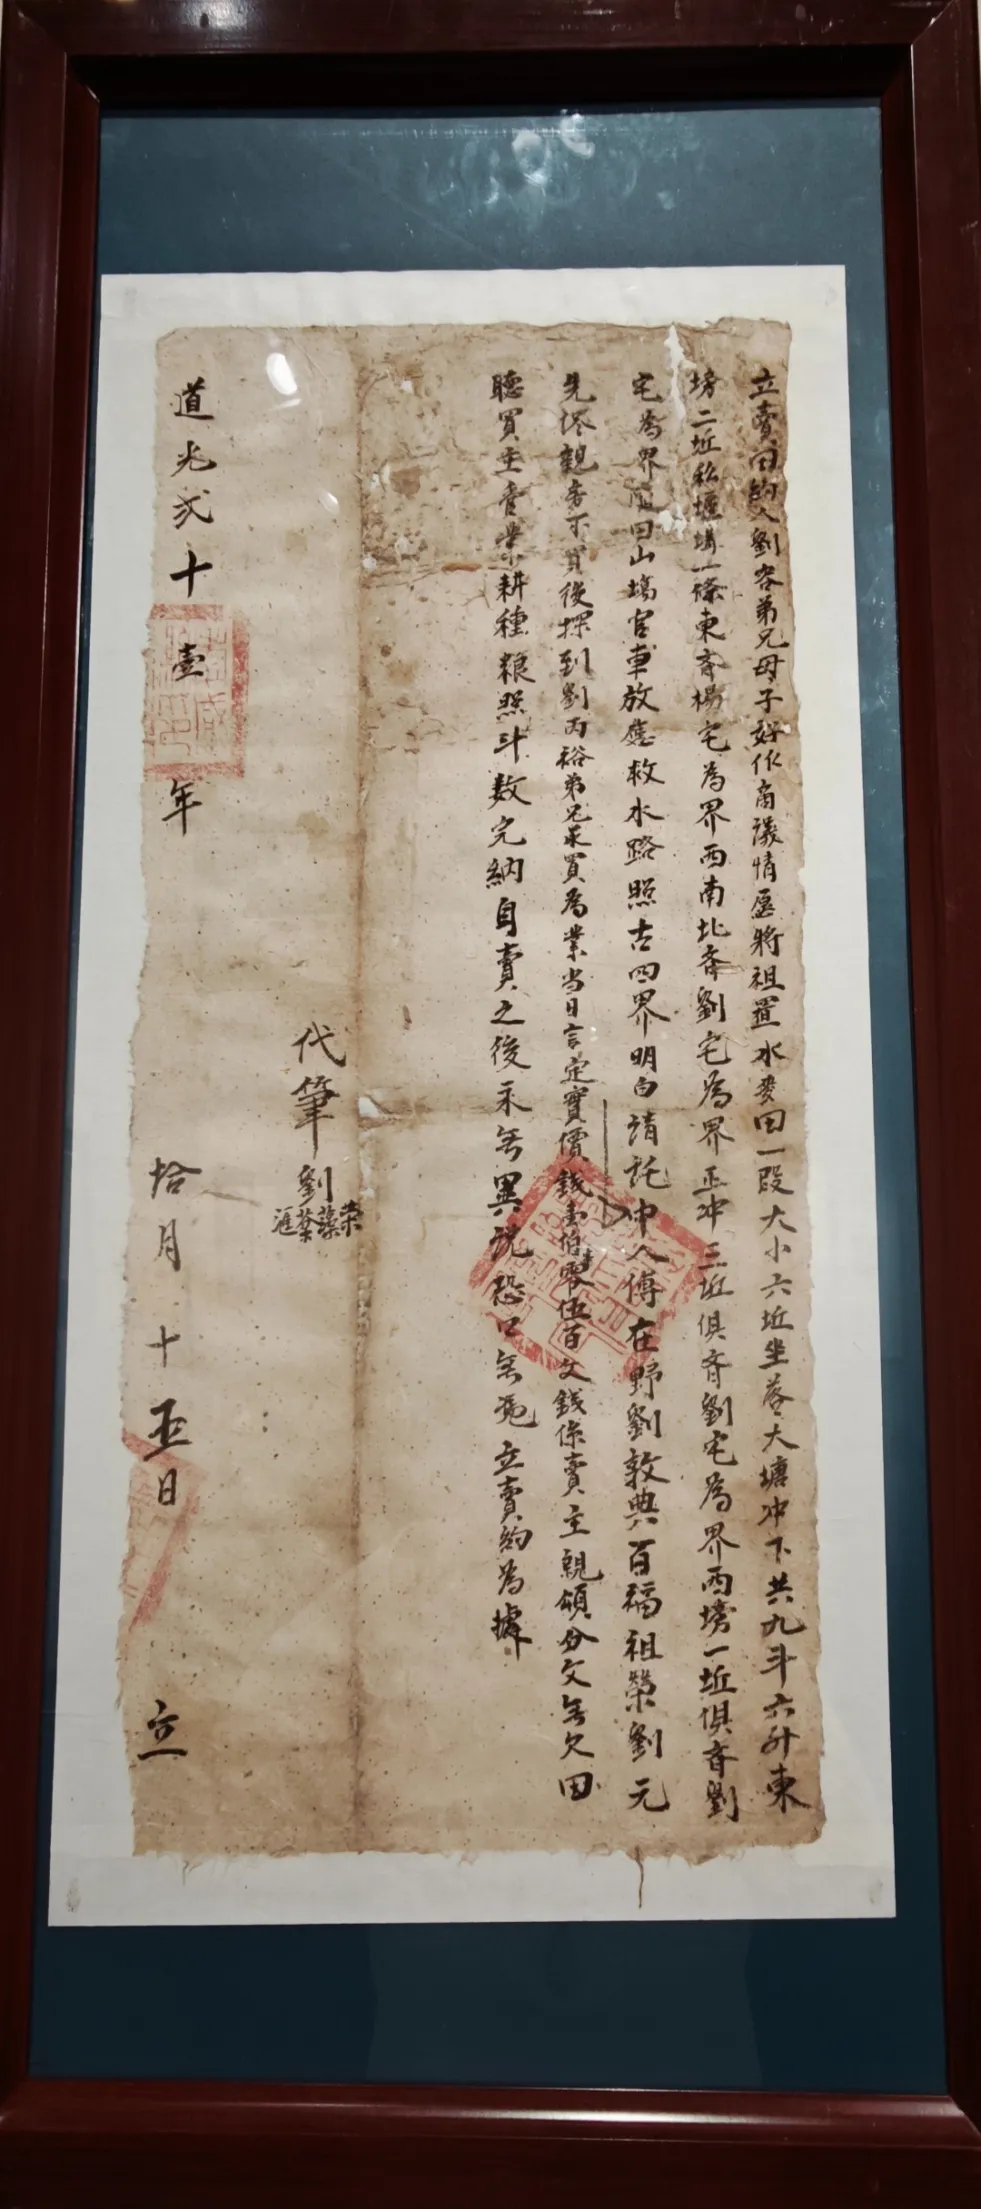 立賣田約人劉容弟兄母子好作商議情愿將祖置水麥田一段大小六坵坐落大塘冲下共九斗六升東
塝二坵私堰溝一條東齊楊宅為界西南北齊劉宅為界正冲三坵俱齊劉宅為界西塝一坵俱齊劉
宅為界田山塆官車放應救水路照古四界明白請託中人傅在野劉敦典百福祖榮劉元
先侭親房不買後探到劉丙裕弟兄承買為業當日言定實價錢壹伯零伍百文錢係賣主親領分文無欠田
聽買主管業耕種粮照斗数完納自賣之後永無異說恐口無凭立賣約為據
代筆劉
道光弍十壹年拾月十五日立